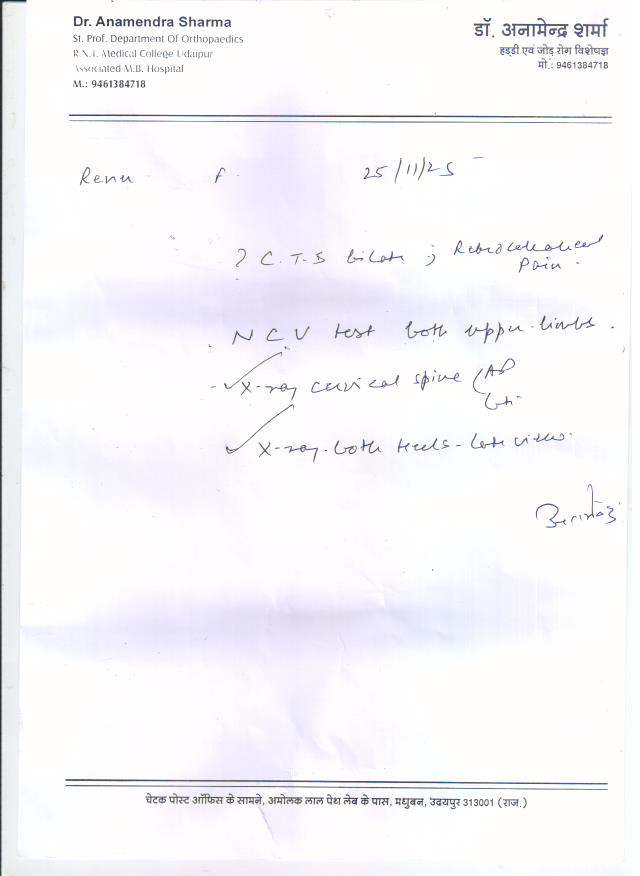 Dr. Anamendra Sharma
St. Prof. Department Of Orthopaedics
R.N.T. Medical College Udaipur
Associated M.B. Hospital
M.: 9461384718
डॉ. अनामेन्द्र शर्मा
हड्डी एवं जोड़ रोग विशेषज्ञ
मो.: 9461384718
Renu F. 25/11/25
? C.T.S bilat ; Retrocalcaneal
Pain.
NCV test both upper limbs.
X-ray cervical spine (AP
Lat.
X-ray both heels - Lat view.
चेटक पोस्ट ऑफिस के सामने, अमोलक लाल पेथ लेब के पास, मधुबन, उदयपुर 313001 (राज.)